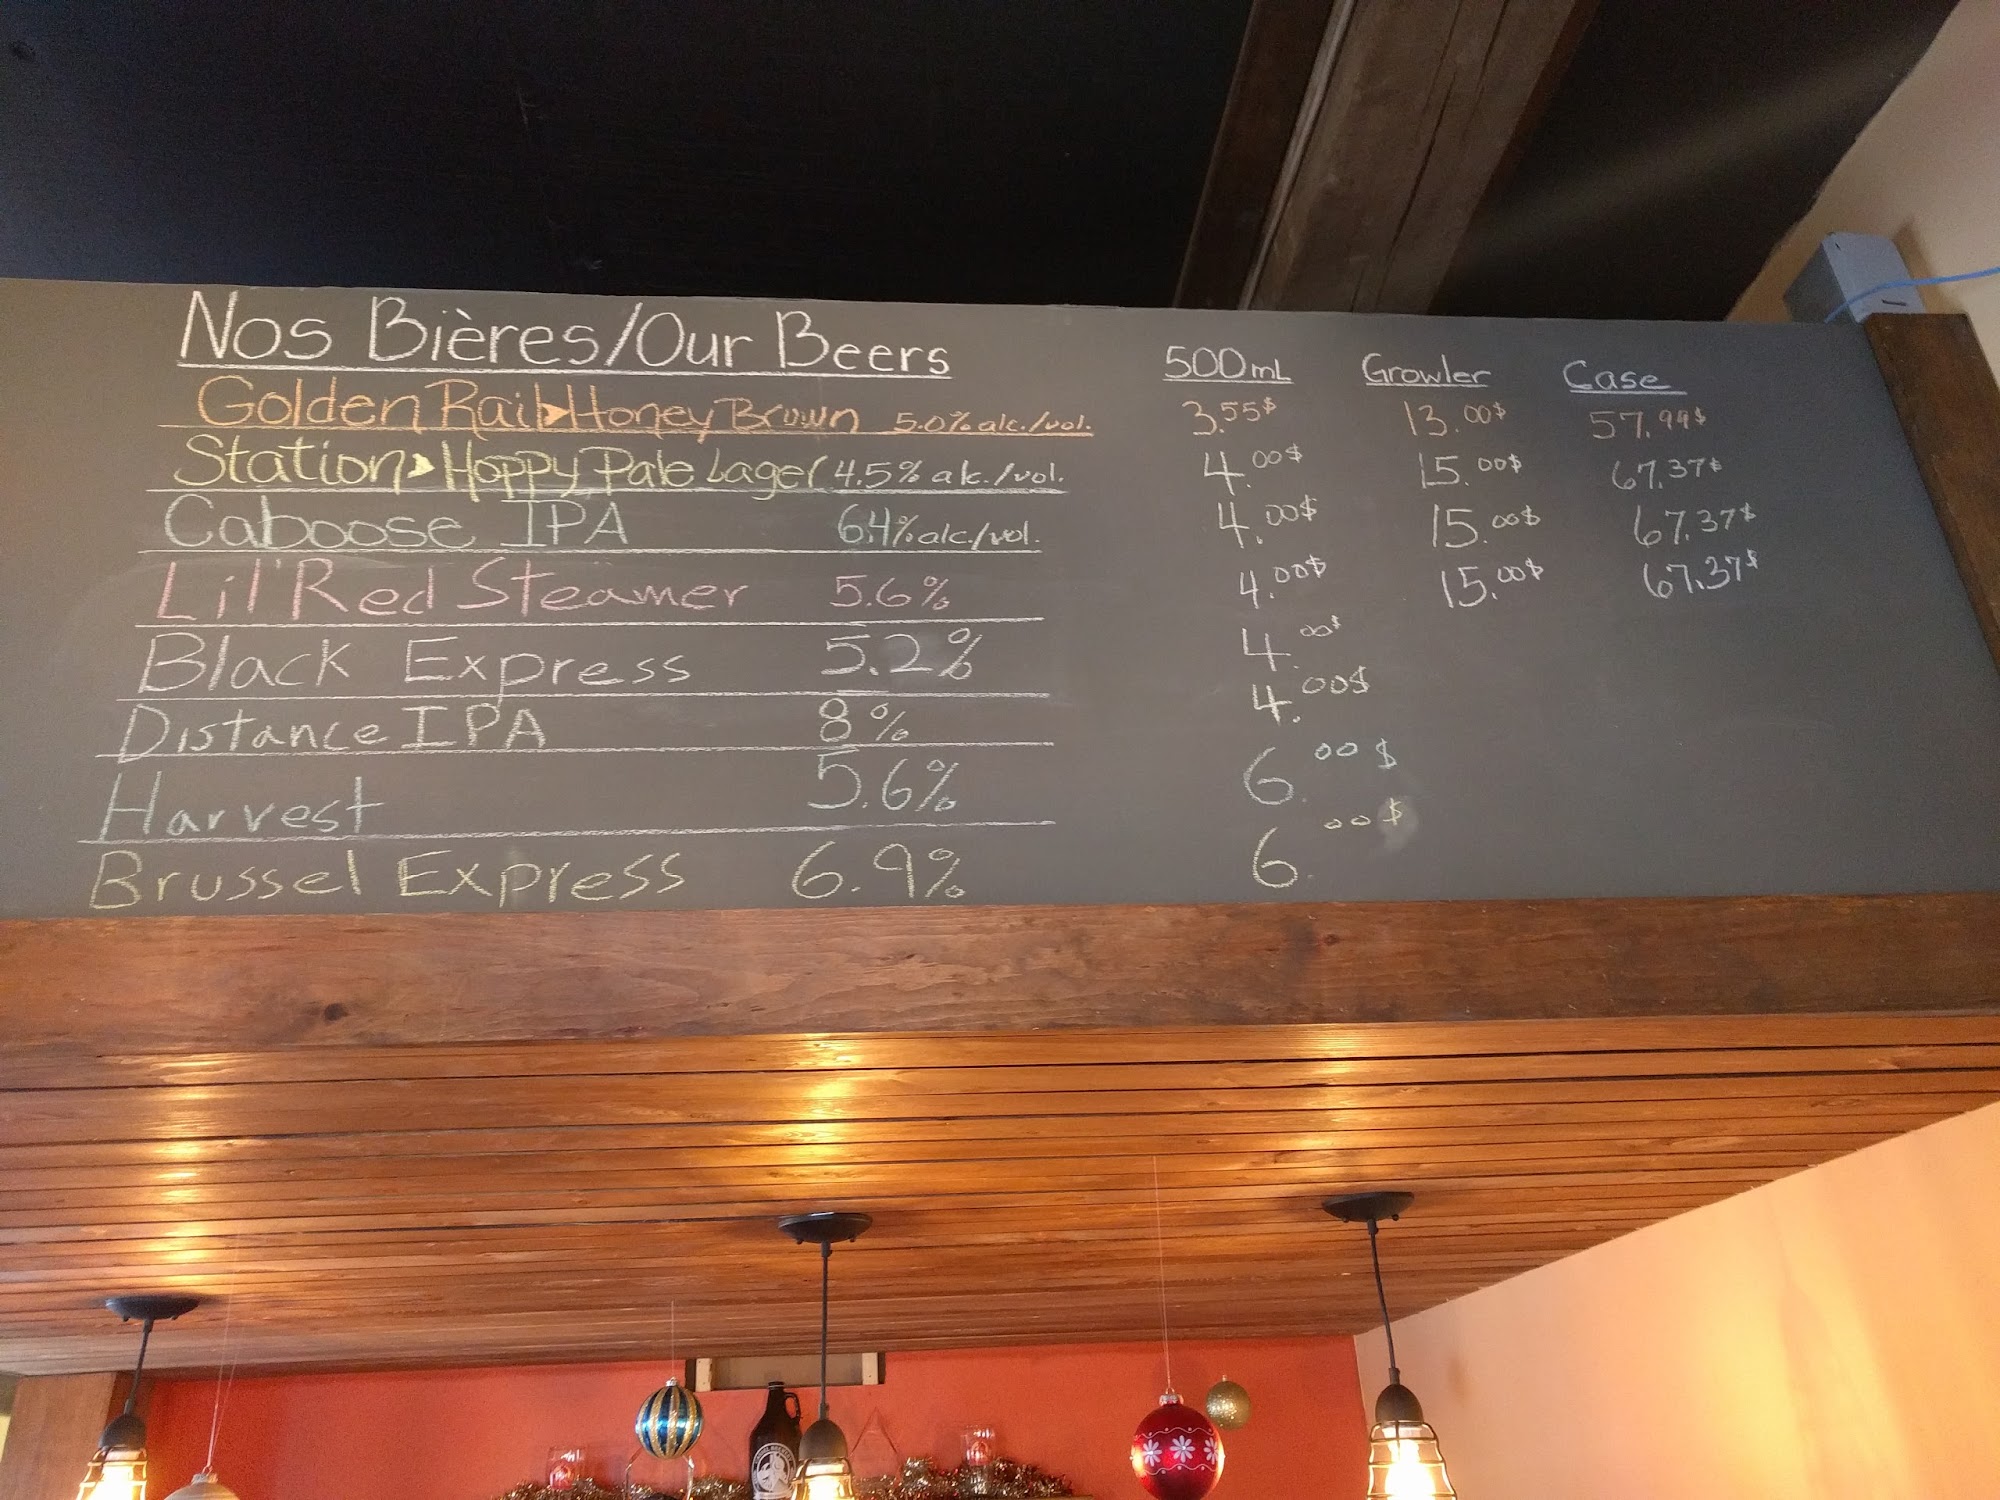 Nos Bières/Our Beers 500mL Growler Case
Golden Rail Honey Brown 5.0% alc./vol. 3.55$ 13.00$ 57.99$
Station Hoppy Pale Lager 4.5% alc./vol. 4.00$ 15.00$ 67.37$
Caboose IPA 6.4% alc./vol. 4.00$ 15.00$ 67.37$
Lil' Red Steamer 5.6% 4.00$ 15.00$ 67.37$
Black Express 5.2% 4.00$
Distance IPA 8% 4.00$
Harvest 5.6% 6.00$
Brussel Express 6.9% 6.00$